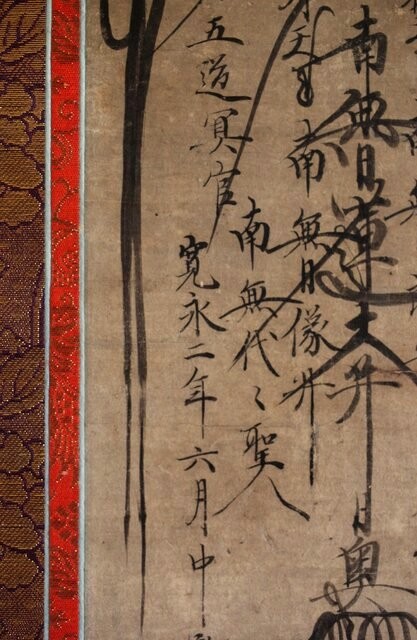 南無日蓮大𦬇
日奥
南無日像𦬇
南無代〻聖人
五道冥官
寛永二年六月中